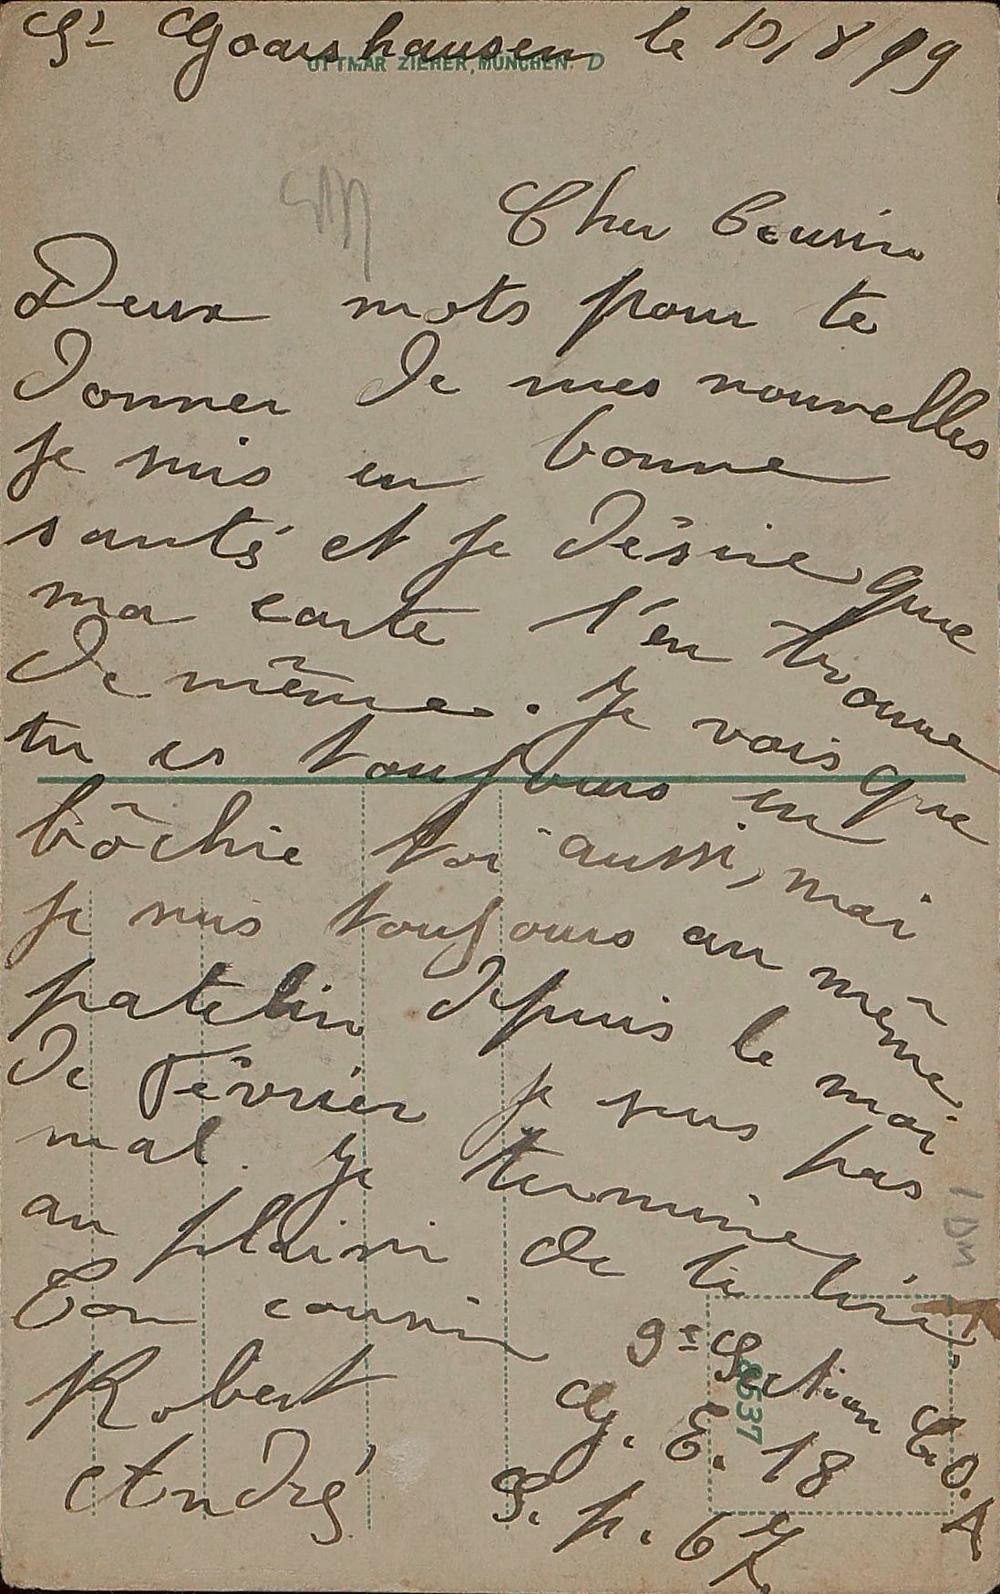 St Goarshausen le 10/8/19
OTTMAR ZIEHER, MÜNCHEN. D
Cher Cousin
Deux mots pour te
donner de mes nouvelles
je suis en bonne
santé et je désire que
ma carte t'en trouve
de même. Je vois que
tu es toujours en
bôchie toi aussi, mai
je suis toujours au même
patelin depuis le moi
de Février je suis pas
mal. Je termine
au plaisir de te lire.
Ton cousin
Robert
André
9e Section C.O.A
G. E. 18
S. p. 67